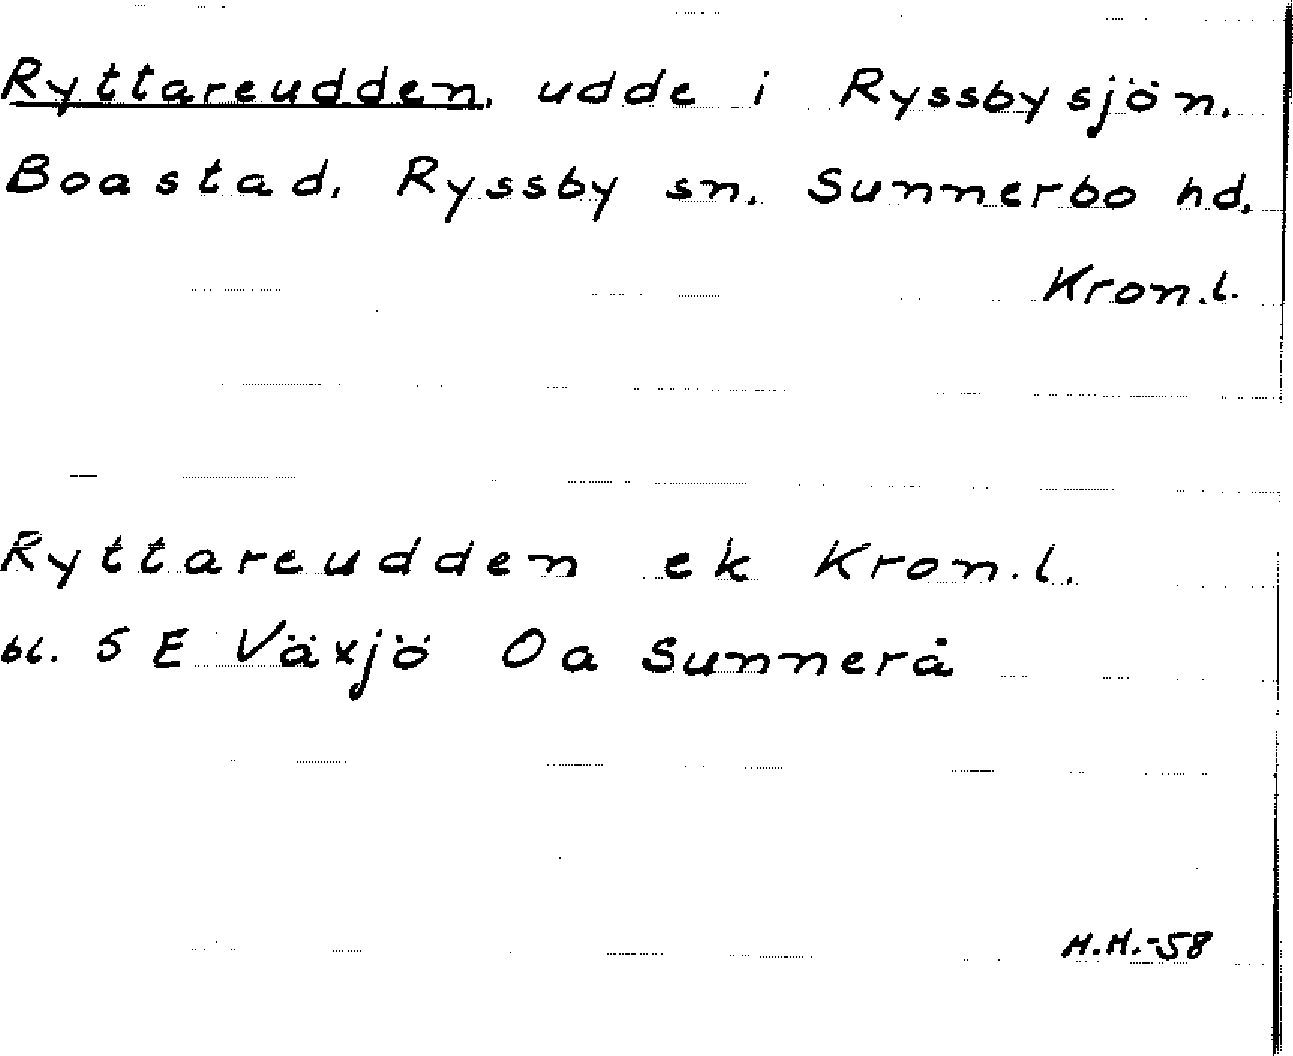 Ryttareudden, udde i Ryssbysjön.
Boastad, Ryssby sn. Sunnerbo hd,
Kron.l.
Ryttareudden ek Kron.l.
bl. 5 E Växjö 0a Sunnerå
H.H.-58